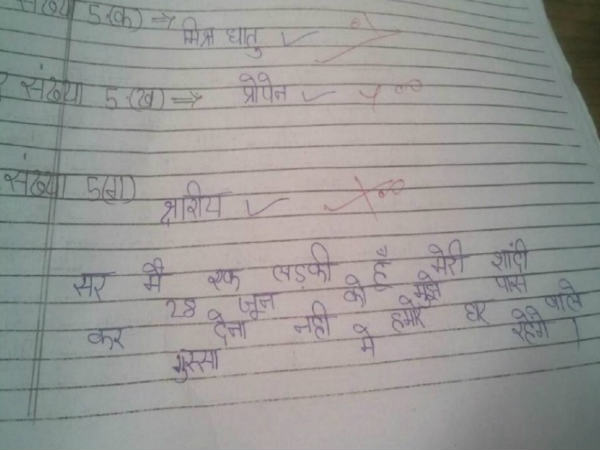 संख्या 5.(क) ⇒
मिश्र धातु
संख्या 5.(ख) ⇒ प्रोपेन
संख्या 5(ग)
क्षारीय
सर मैं एक लड़की हूँ मेरी शादी
28 जून को है मुझे पास
कर देना नही हमारे घर वाले
गुस्सा में रहेंगे।